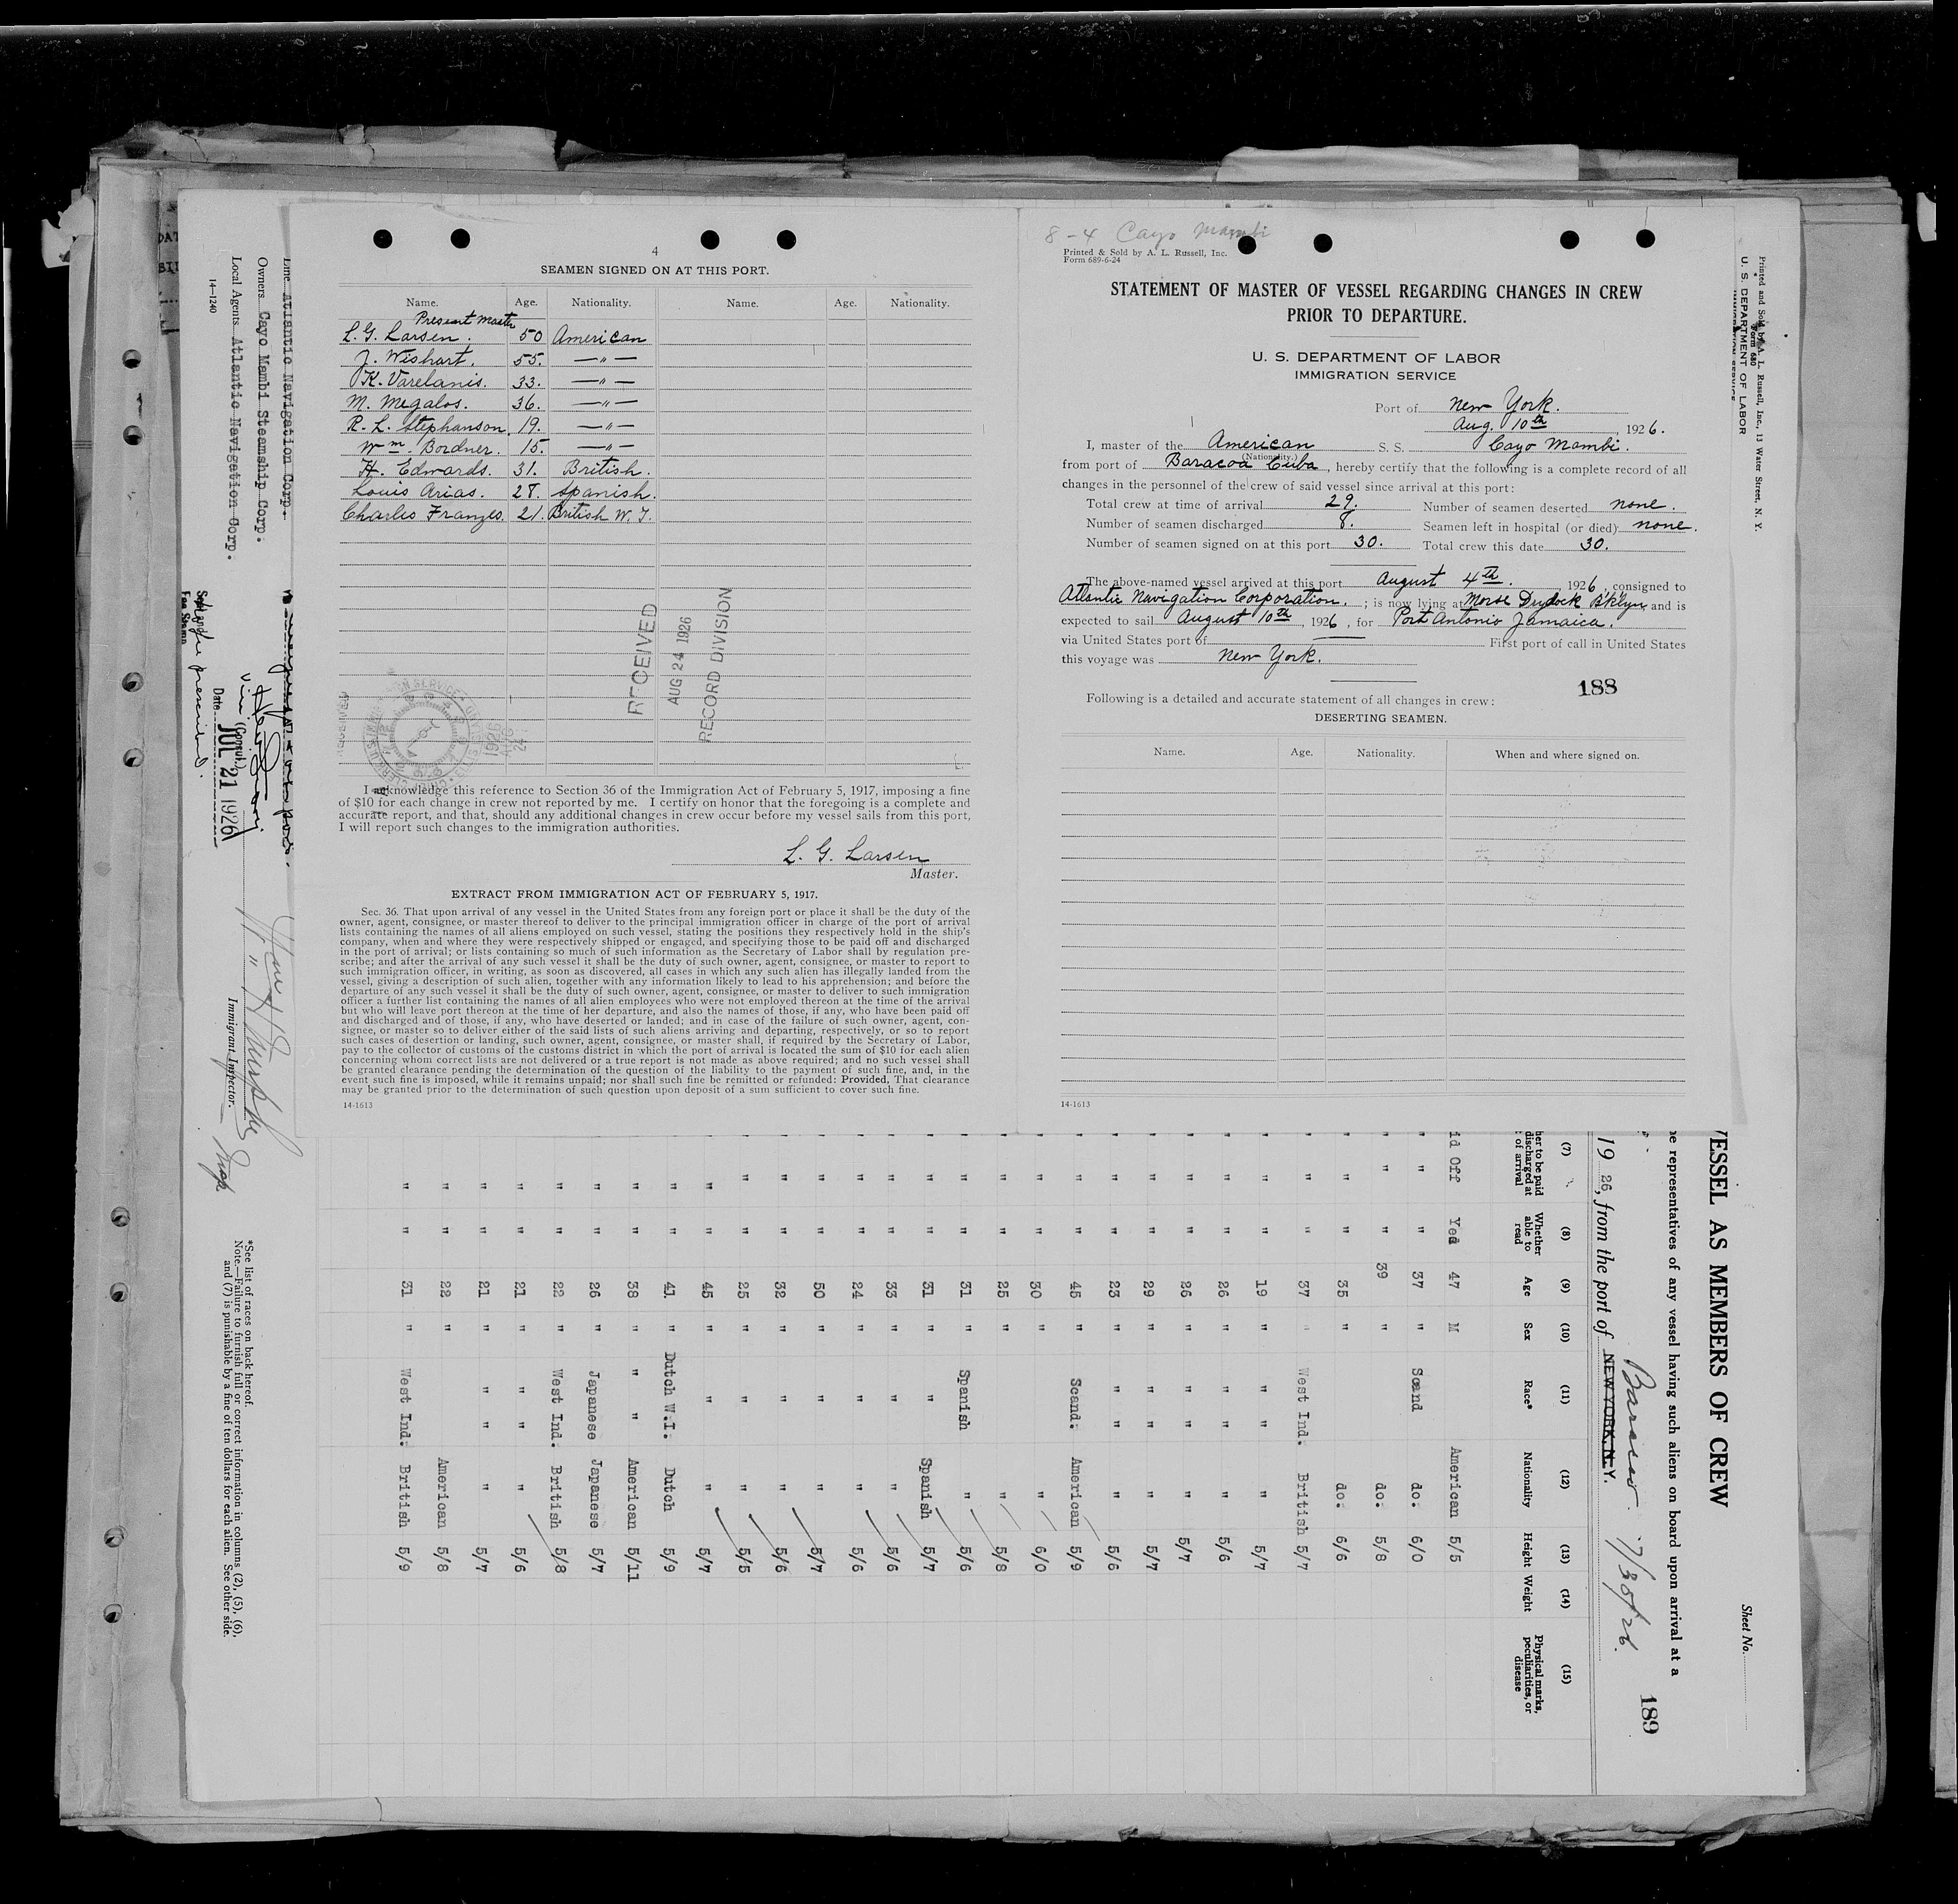 4
SEAMEN SIGNED ON AT THIS PORT.
Name. Age. Nationality. Name. Age. Nationality.
Present Master
L. G. Larsen. 50 American
J. Wishart. 55. —"—
K. Varelanis. 33. —"—
M. Megalos. 36. —"—
R. L. Stephanson. 19. —"—
Wm. Bordner. 15. —"—
H. Edwards. 31. British.
Louis Arias. 28. Spanish.
Charles Franzes. 21. British W. I.
RECEIVED
AUG 24 1926
RECORD DIVISION
I acknowledge this reference to Section 36 of the Immigration Act of February 5, 1917, imposing a fine
of $10 for each change in crew not reported by me. I certify on honor that the foregoing is a complete and
accurate report, and that, should any additional changes in crew occur before my vessel sails from this port,
I will report such changes to the immigration authorities.
L. G. Larsen
Master.
EXTRACT FROM IMMIGRATION ACT OF FEBRUARY 5, 1917.
Sec. 36. That upon arrival of any vessel in the United States from any foreign port or place it shall be the duty of the
owner, agent, consignee, or master thereof to deliver to the principal immigration officer in charge of the port of arrival
lists containing the names of all aliens employed on such vessel, stating the positions they respectively hold in the ship's
company, when and where they were respectively shipped or engaged, and specifying those to be paid off and discharged
in the port of arrival; or lists containing so much of such information as the Secretary of Labor shall by regulation pre-
scribe; and after the arrival of any such vessel it shall be the duty of such owner, agent, consignee, or master to report to
such immigration officer, in writing, as soon as discovered, all cases in which any such alien has illegally landed from the
vessel, giving a description of such alien, together with any information likely to lead to his apprehension; and before the
departure of any such vessel it shall be the duty of such owner, agent, consignee, or master to deliver to such immigration
officer a further list containing the names of all alien employees who were not employed thereon at the time of the arrival
but who will leave port thereon at the time of her departure, and also the names of those, if any, who have been paid off
and discharged and of those, if any, who have deserted or landed; and in case of the failure of such owner, agent, con-
signee, or master so to deliver either of the said lists of such aliens arriving and departing, respectively, or so to report
such cases of desertion or landing, such owner, agent, consignee, or master shall, if required by the Secretary of Labor,
pay to the collector of customs of the customs district in which the port of arrival is located the sum of $10 for each alien
concerning whom correct lists are not delivered or a true report is not made as above required; and no such vessel shall
be granted clearance pending the determination of the question of the liability to the payment of such fine, and, in the
event such fine is imposed, while it remains unpaid; nor shall such fine be remitted or refunded: Provided, That clearance
may be granted prior to the determination of such question upon deposit of a sum sufficient to cover such fine.
14-1613
8-4 Cayo Mambi
Printed & Sold by A. L. Russell, Inc.
Form 689-6-24
STATEMENT OF MASTER OF VESSEL REGARDING CHANGES IN CREW
PRIOR TO DEPARTURE.
U. S. DEPARTMENT OF LABOR
IMMIGRATION SERVICE
Port of New York.
Aug. 10th, 1926.
I, master of the American S. S. Cayo Mambi.
(Nationality.)
from port of Baracoa Cuba, hereby certify that the following is a complete record of all
changes in the personnel of the crew of said vessel since arrival at this port:
Total crew at time of arrival 29. Number of seamen deserted none.
Number of seamen discharged 8. Seamen left in hospital (or died) none.
Number of seamen signed on at this port 30. Total crew this date 30.
The above-named vessel arrived at this port August 4th., 1926, consigned to
Atlantic Navigation Corporation.; is now lying at Morse Drydock B'klyn and is
expected to sail August 10th, 1926, for Port Antonio Jamaica.
via United States port of First port of call in United States
this voyage was New York.
188
Following is a detailed and accurate statement of all changes in crew:
DESERTING SEAMEN.
Name. Age. Nationality. When and where signed on.
14-1613
Printed and Sold by A. L. Russell, Inc., 13 Water Street, N. Y.
Form 680
U. S. DEPARTMENT OF LABOR
IMMIGRATION SERVICE
Sheet No.
VESSEL AS MEMBERS OF CREW
he representatives of any vessel having such aliens on board upon arrival at a
189
19 26, from the port of NEW YORK, N.Y. 7/30/26.
(7) (8) (9) (10) (11) (12) (13) (14) (15)
her to be paid discharged at of arrival Whether able to read Age Sex Race* Nationality Height Weight Physical marks, peculiarities, or disease
id Off Yes 47 M American 5/5
" " 37 " Scand do. 6/0
" " 39 " do. 5/8
" " 35 " do. 6/6
" " 37 " West Ind. British 5/7
" " 19 " " " " 5/7
" " 26 " " " " 5/6
" " 26 " " " " 5/7
" " 29 " " " " 5/7
" " 23 " " " " 5/6
" " 45 " Scand. American 5/9
" " 30 " " 6/0
" " 25 " " 5/8
" " 31 " Spanish " 5/6
" " 31 " " Spanish 5/7
" " 33 " " " 5/6
" " 24 " " " 5/6
" " 50 " " " 5/7
" " 32 " " " 5/6
" " 25 " " " 5/5
" " 45 " " " 5/7
" " 41 " Dutch W.I. Dutch 5/9
" " 38 " " " American 5/11
" " 26 " Japanese Japanese 5/7
" " 22 " West Ind. British 5/8
" " 21 " " " " 5/6
" " 21 " " " " 5/7
" " 22 " American 5/8
" " 31 " West Ind. British 5/9
Line Atlantic Navigation Corp.
Owners Cayo Mambi Steamship Corp.
Local Agents Atlantic Navigation Corp.
14-1240
(Consul.)
Date JUL 21 1926
Fee Stamp
prescribed.
Immigrant Inspector.
*See list of races on back hereof.
Note.—Failure to furnish full or correct information in columns (2), (5), (6),
and (7) is punishable by a fine of ten dollars for each alien. See other side.